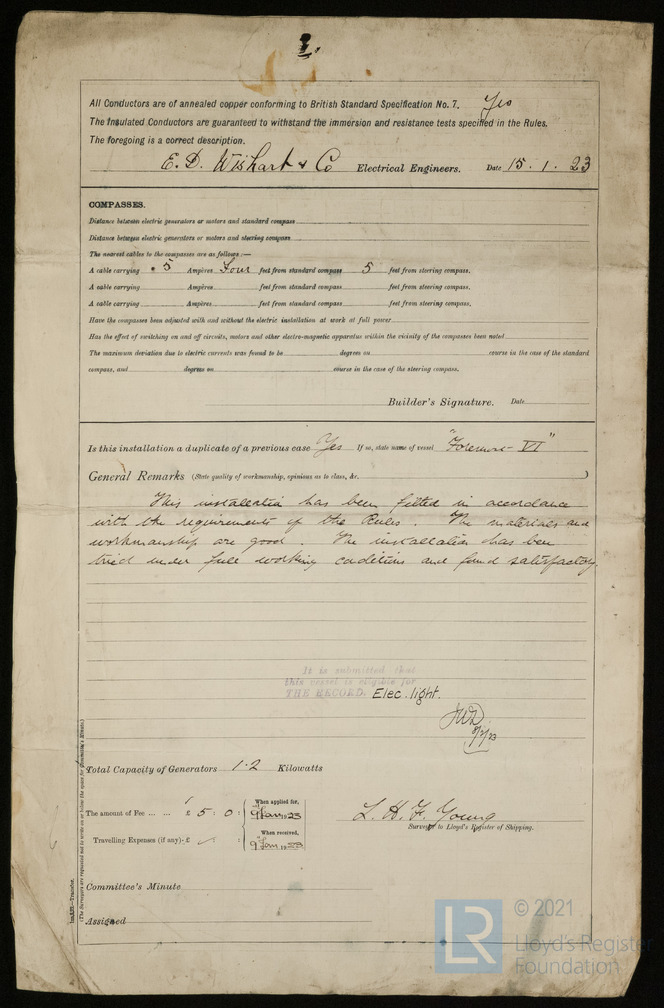 1.
All Conductors are of annealed copper conforming to British Standard Specification No. 7. Yes
The Insulated Conductors are guaranteed to withstand the immersion and resistance tests specified in the Rules.
The foregoing is a correct description.
E. D. Wishart & Co Electrical Engineers. Date 15.1.23
COMPASSES.
Distance between electric generators or motors and standard compass
Distance between electric generators or motors and steering compass
The nearest cables to the compasses are as follows:—
A cable carrying .5 Ampères Four feet from standard compass 5 feet from steering compass.
A cable carrying Ampères feet from standard compass feet from steering compass.
A cable carrying Ampères feet from standard compass feet from steering compass.
Have the compasses been adjusted with and without the electric installation at work at full power
Has the effect of switching on and off circuits, motors and other electro-magnetic apparatus within the vicinity of the compasses been noted
The maximum deviation due to electric currents was found to be degrees on course in the case of the standard
compass, and degrees on course in the case of the steering compass.
Builder's Signature. Date
Is this installation a duplicate of a previous case Yes If so, state name of vessel "Foremost VI"
General Remarks (State quality of workmanship, opinions as to class, &c. )
This installation has been fitted in accordance
with the requirements of the Rules. The materials and
workmanship are good. The installation has been
tried under full working conditions and found satisfactory.
It is submitted that
this vessel is eligible for
THE RECORD. Elec. light.
Total Capacity of Generators 1.2 Kilowatts
The amount of Fee ... ... £ 5 : 0 : When applied for, 9 Jan 1923
Travelling Expenses (if any) £ : When received, 9 Jan 1923
L. H. F. Young
Surveyor to Lloyd's Register of Shipping.
Committee's Minute
Assigned
(The Surveyors are requested not to write on or below the space for Committee's Minute.)
© 2021
LR Lloyd's Register
Foundation